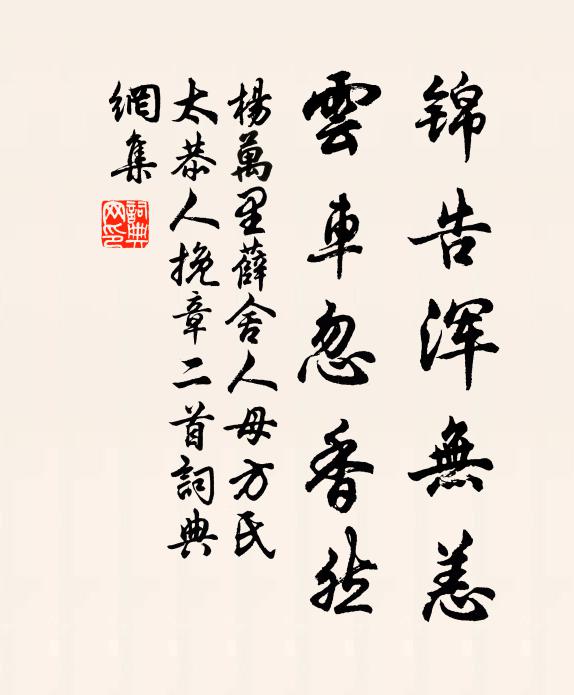 锦告浑無恙
雲車忽香然
楊萬里薛舍人母方氏
太恭人挽章二首詞典
網集
詞典網印